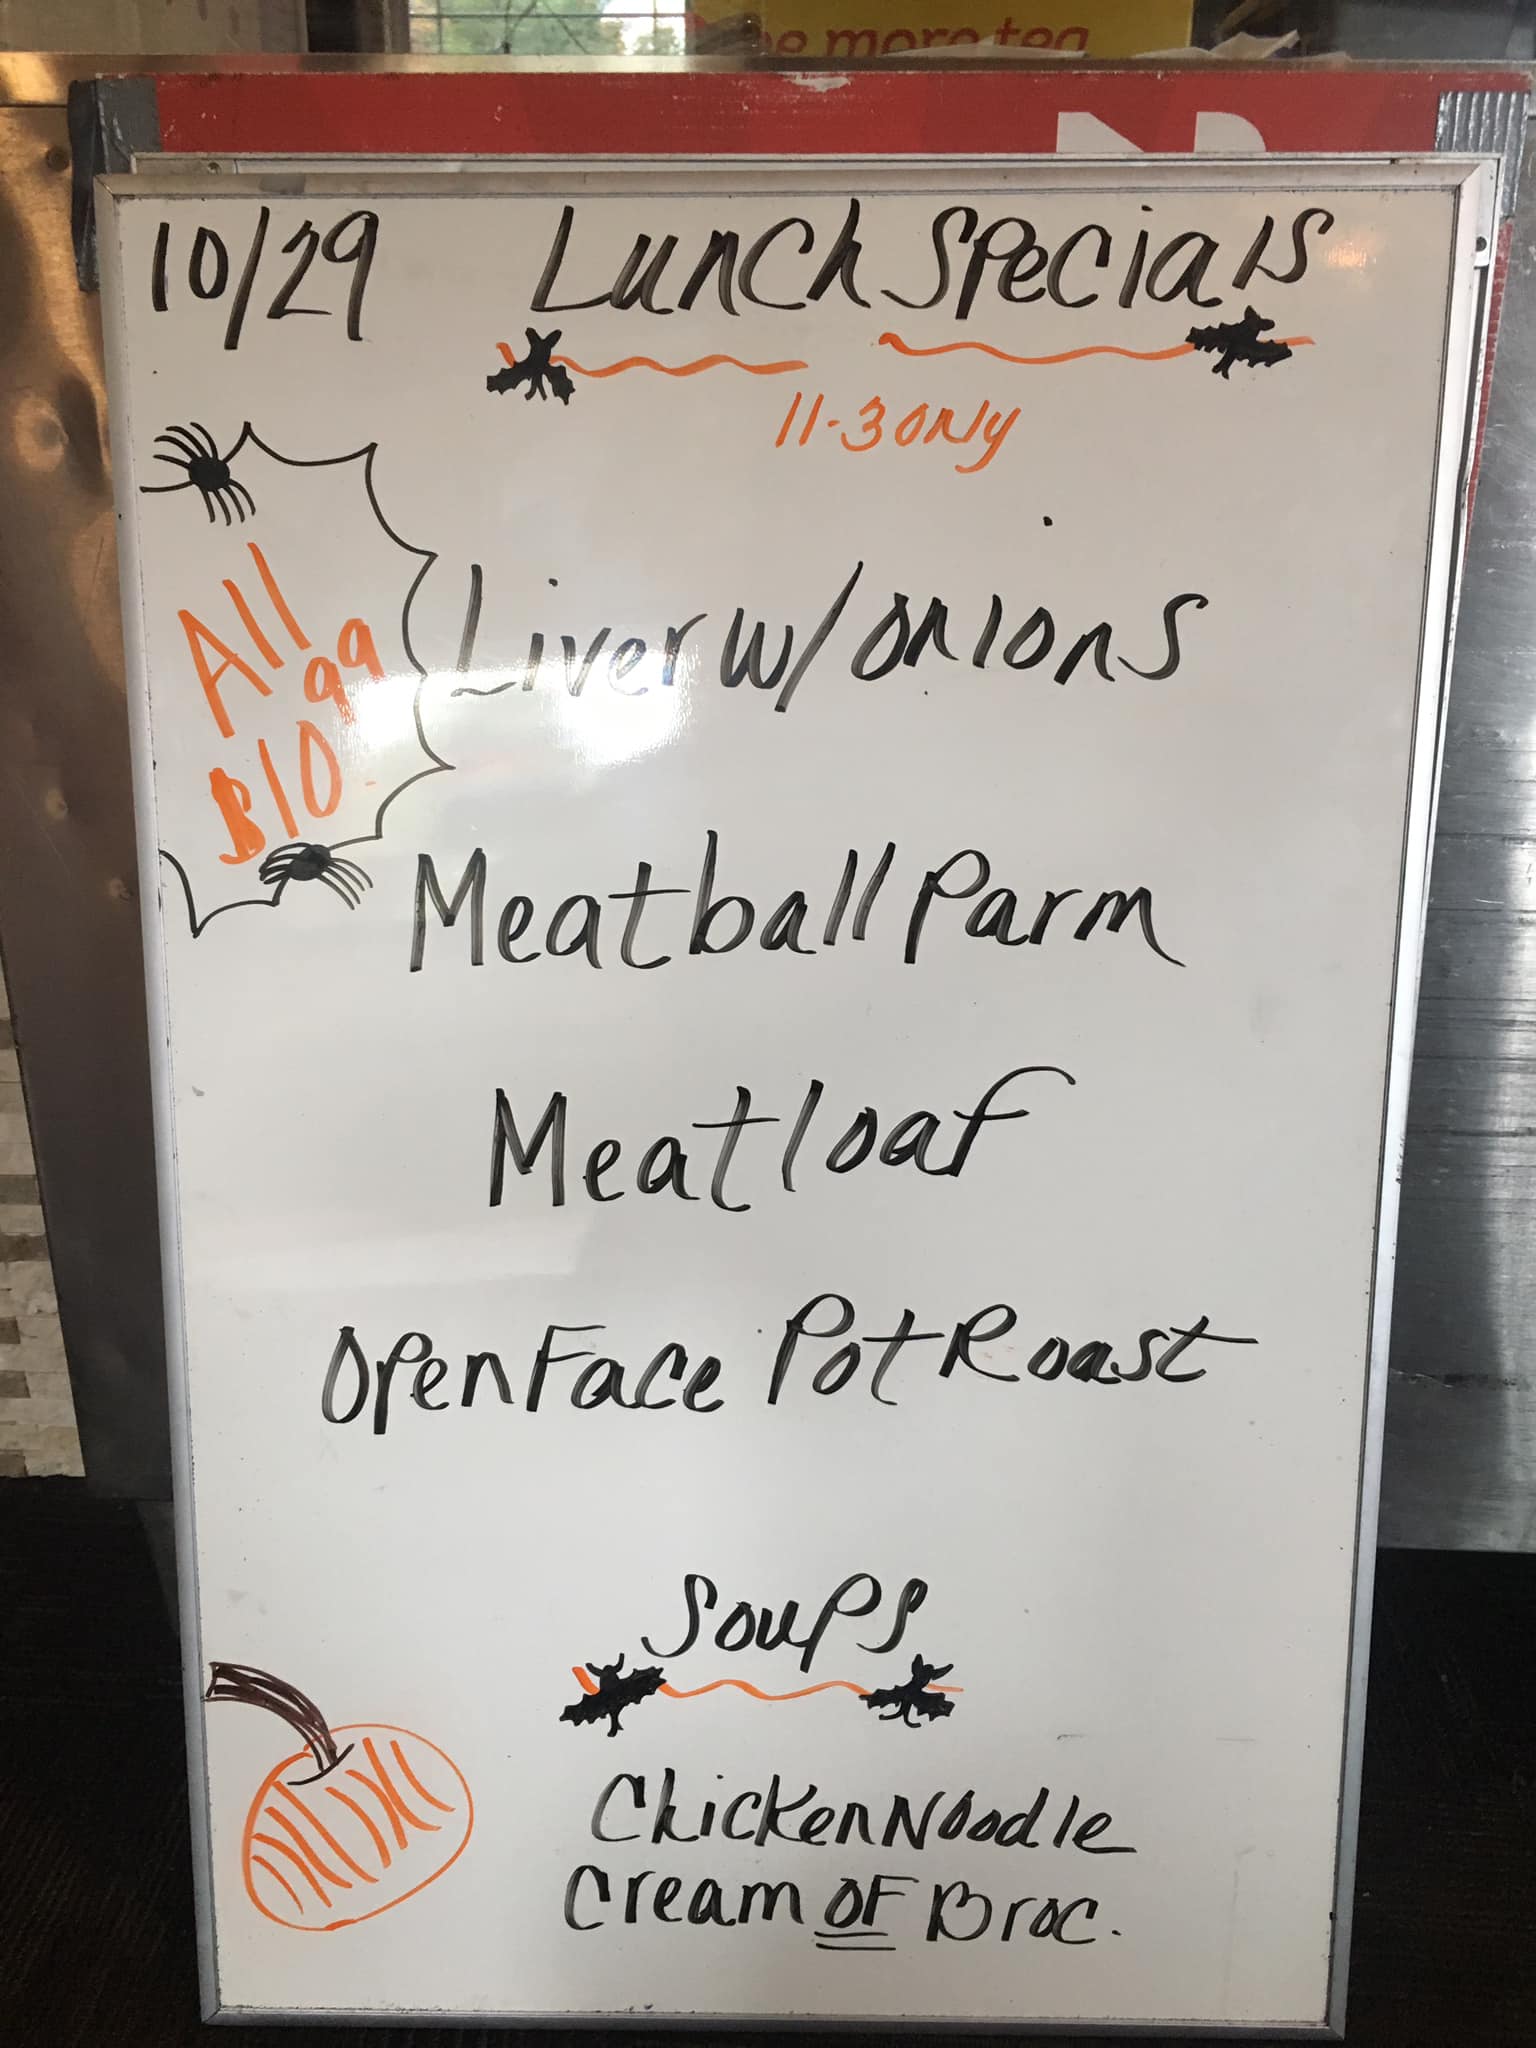 be more tea
10/29 Lunch Specials
11-3 only
All
$10.99
Liver w/ onions
Meatball Parm
Meatloaf
Open Face Pot Roast
Soups
Chicken Noodle
Cream OF Broc.